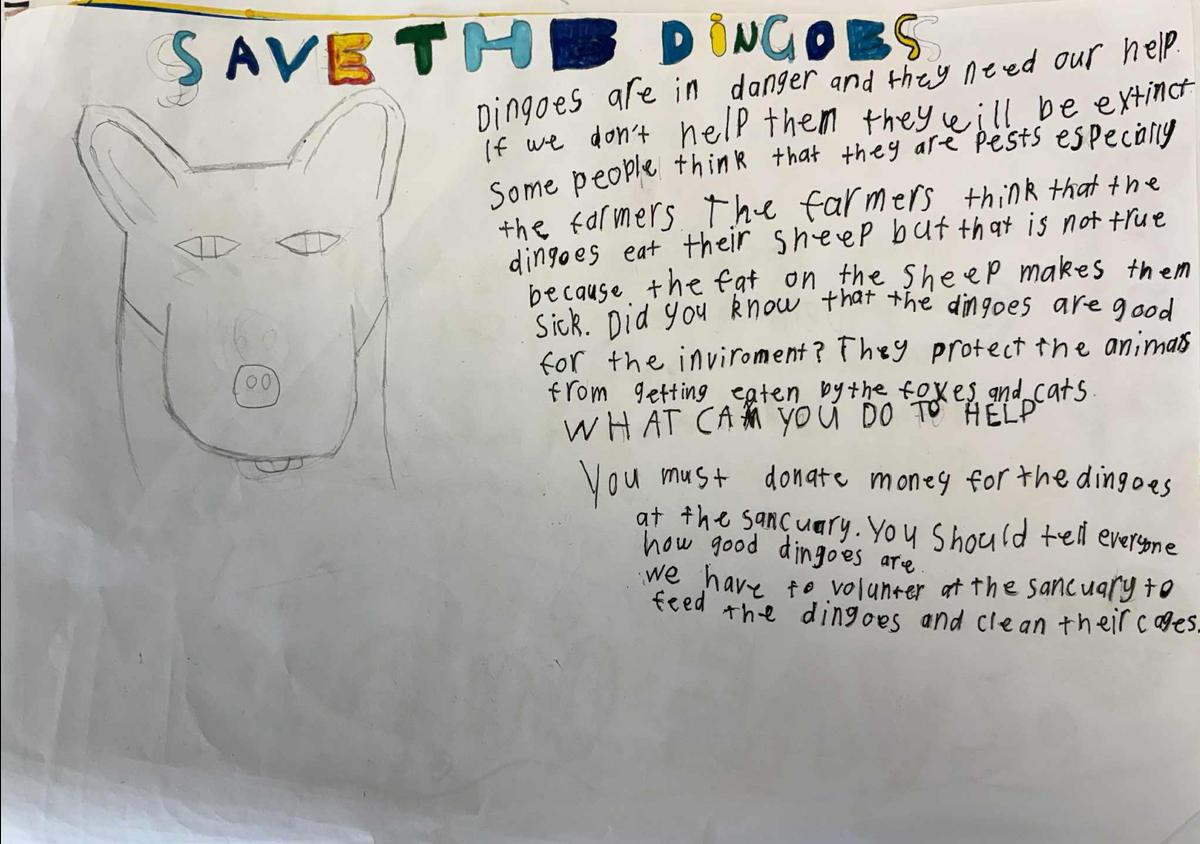 SAVE THE DINGOES
Dingoes are in danger and they need our help.
If we don't help them they will be extinct
Some people think that they are pests especially
the farmers. The farmers think that the
dingoes eat their sheep but that is not true
because the fat on the sheep makes them
sick. Did you know that the dingoes are good
for the inviroment? They protect the animals
from getting eaten by the foxes and cats.
WHAT CAN YOU DO TO HELP
You must donate money for the dingoes
at the sancuary. You should tell everyone
how good dingoes are
we have to volunter at the sancuary to
feed the dingoes and clean their cages.